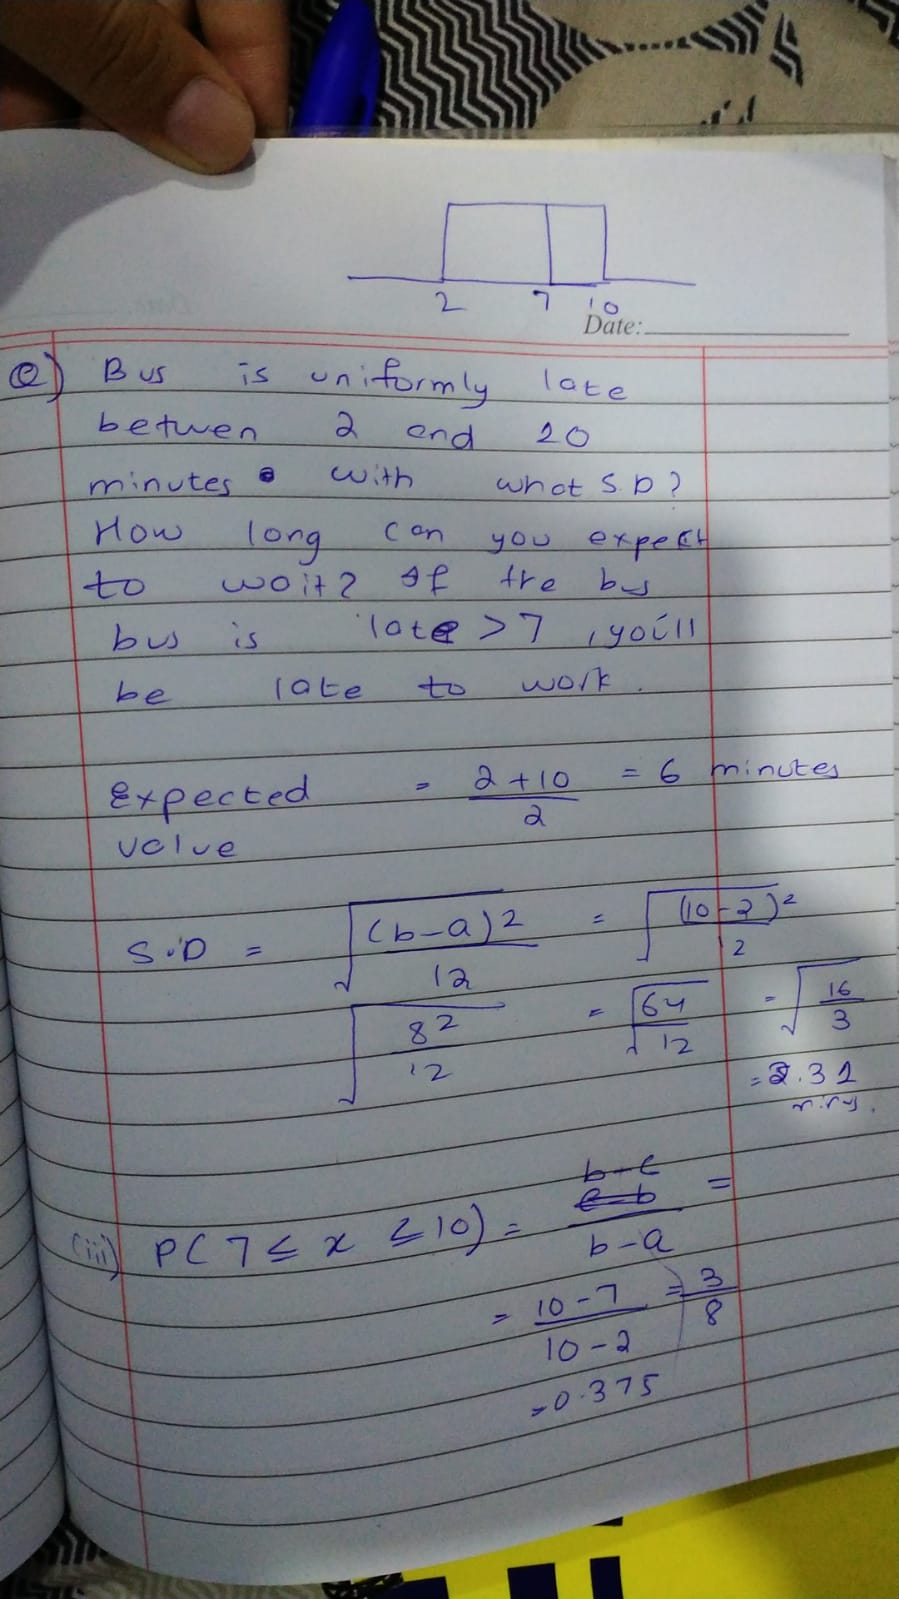 2 7 10
Date:
Q) Bus is uniformly late
betwen 2 and 10
minutes with what S.D?
How long can you expect
to wait? If the bus
bus is late > 7, you'll
be late to work.
Expected value = 2+10/2 = 6 minutes
S.D = √((b-a)2/12) = √((10-2)2/12)
√(82/12) = √(64/12) = √(16/3)
= 2.31
mins.
b-c
(iii) P(7 ≤ x ≤ 10) = /b-a =
= 10-7/10-2 = 3/8
= 0.375